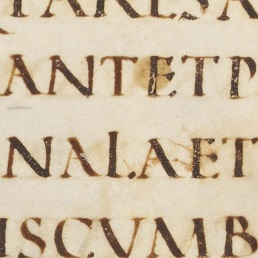 TARESA
ANTETP
NALAET
ISCVMB